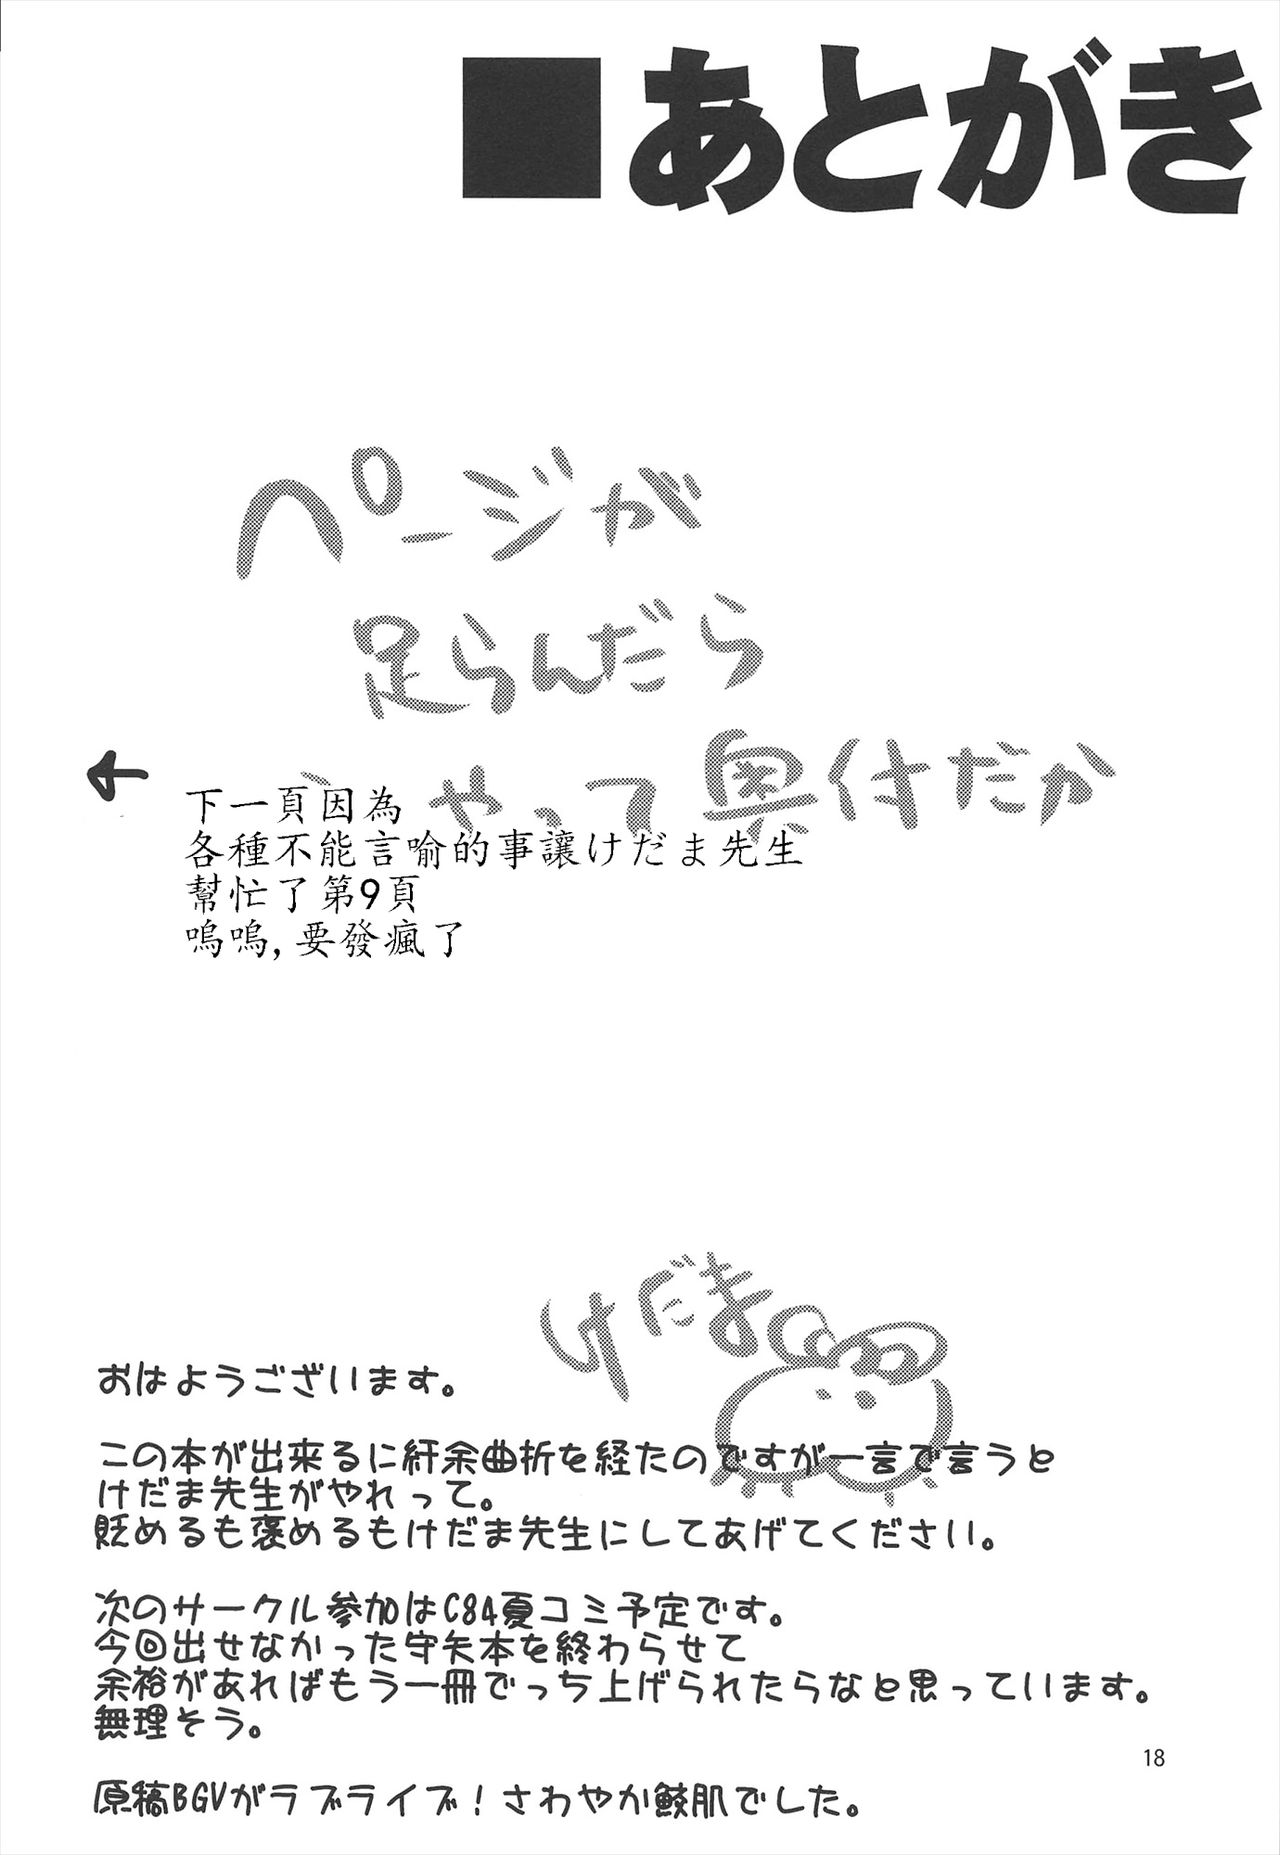 ■あとがき
ページが
足らんだら
やって奥付だか
下一頁因為
各種不能言喻的事讓けだま先生
幫忙了第9頁
嗚嗚,要發瘋了
けだま
おはようございます。
この本が出来るに紆余曲折を経たのですが一言で言うと
けだま先生がやれって。
貶めるも褒めるもけだま先生にしてあげてください。
次のサークル参加はC84夏コミ予定です。
今回出せなかった守矢本を終わらせて
余裕があればもう一冊でっち上げられたらなと思っています。
無理そう。
18
原稿BGVがラブライブ!さわやか鮫肌でした。